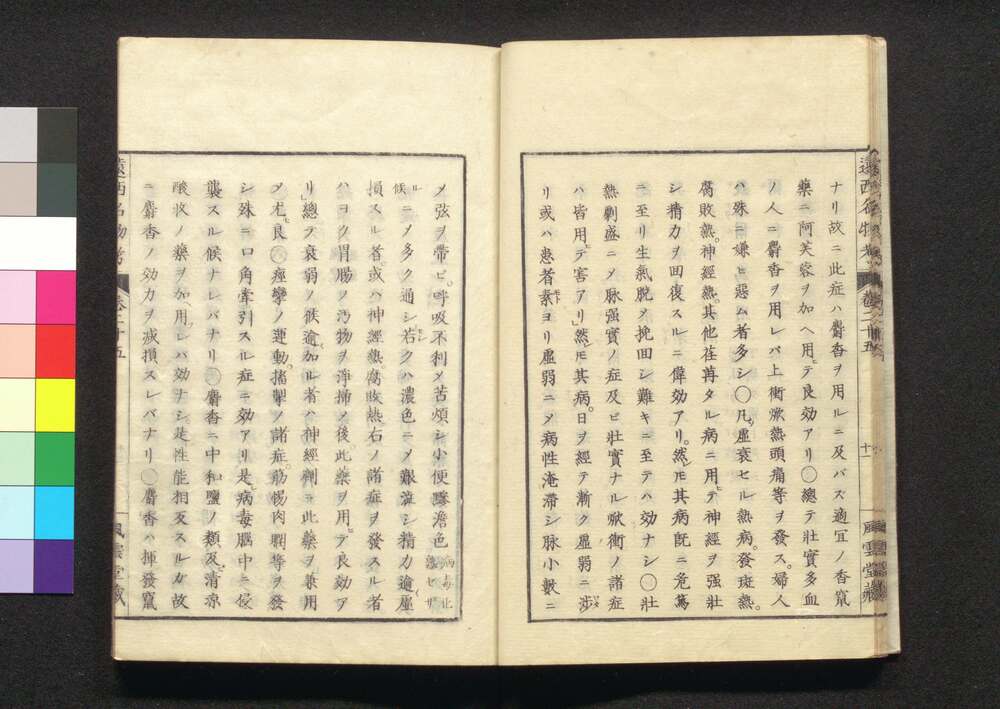 遠西名物考 卷二十五 十一 風雲堂藏
ナリ故ニ此症ハ麝香ヲ用ルニ及バス適宜ノ香竄
藥ニ阿芙蓉ヲ加ヘ用テ良効アリ〇總テ壯實多血
ノ人ニ麝香ヲ用レバ上衝漱熱頭痛等ヲ發ス。婦人
ハ殊ニ嫌ヒ惡ム者多シ〇凡虛衰セル熱病。發斑熱。
腐敗熱。神經熱。其他荏苒タル病ニ用テ神經ヲ强壯
シ精力ヲ回復スルニ偉効アリ。然𪜈其病旣ニ危篤
ニ至リ生氣脫メ挽回シ難キニ至テハ効ナシ〇壯
熱剿盛ニメ脉强實ノ症及ヒ壯實ナル焮衝ノ諸症
ハ皆用テ害アリ然𪜈其病。日ヲ經テ漸ク虛弱ニ涉
リ或ハ患者素ヨリ虛弱ニメ病性淹滯シ脉小數ニ
メ弦ヲ帶ビ。呼吸不利メ苦煩シ小便黲澹色
ル候ニメ多ク通シ若クハ濃色ニメ艱澁シ精力逾虛
損スル者。或ハ神經熱腐敗熱右ノ諸症ヲ發スル者
ハヨク胃腸ノ汚物ヲ淨掃メ後。此藥ヲ用テ良効ア
リ總テ衰弱ノ候逾加ル者ハ神經劑ニ此藥ヲ兼用
メ尤良〇痙攣ノ運動。搐掣ノ諸症。筋惕肉瞤等ヲ發
シ殊ニ口角牽引スル症ニ効アリ是病毒腦中ニ侵
襲スル候ナレバナリ〇麝香ニ中和鹽ノ類及清凉
酸收ノ藥ヲ加用レバ効ナシ。是性能相反スルカ故
ニ麝香ノ効力ヲ減損スレバナリ〇麝香ハ揮發竄
遠西名物考 卷二十五 風雲堂藏